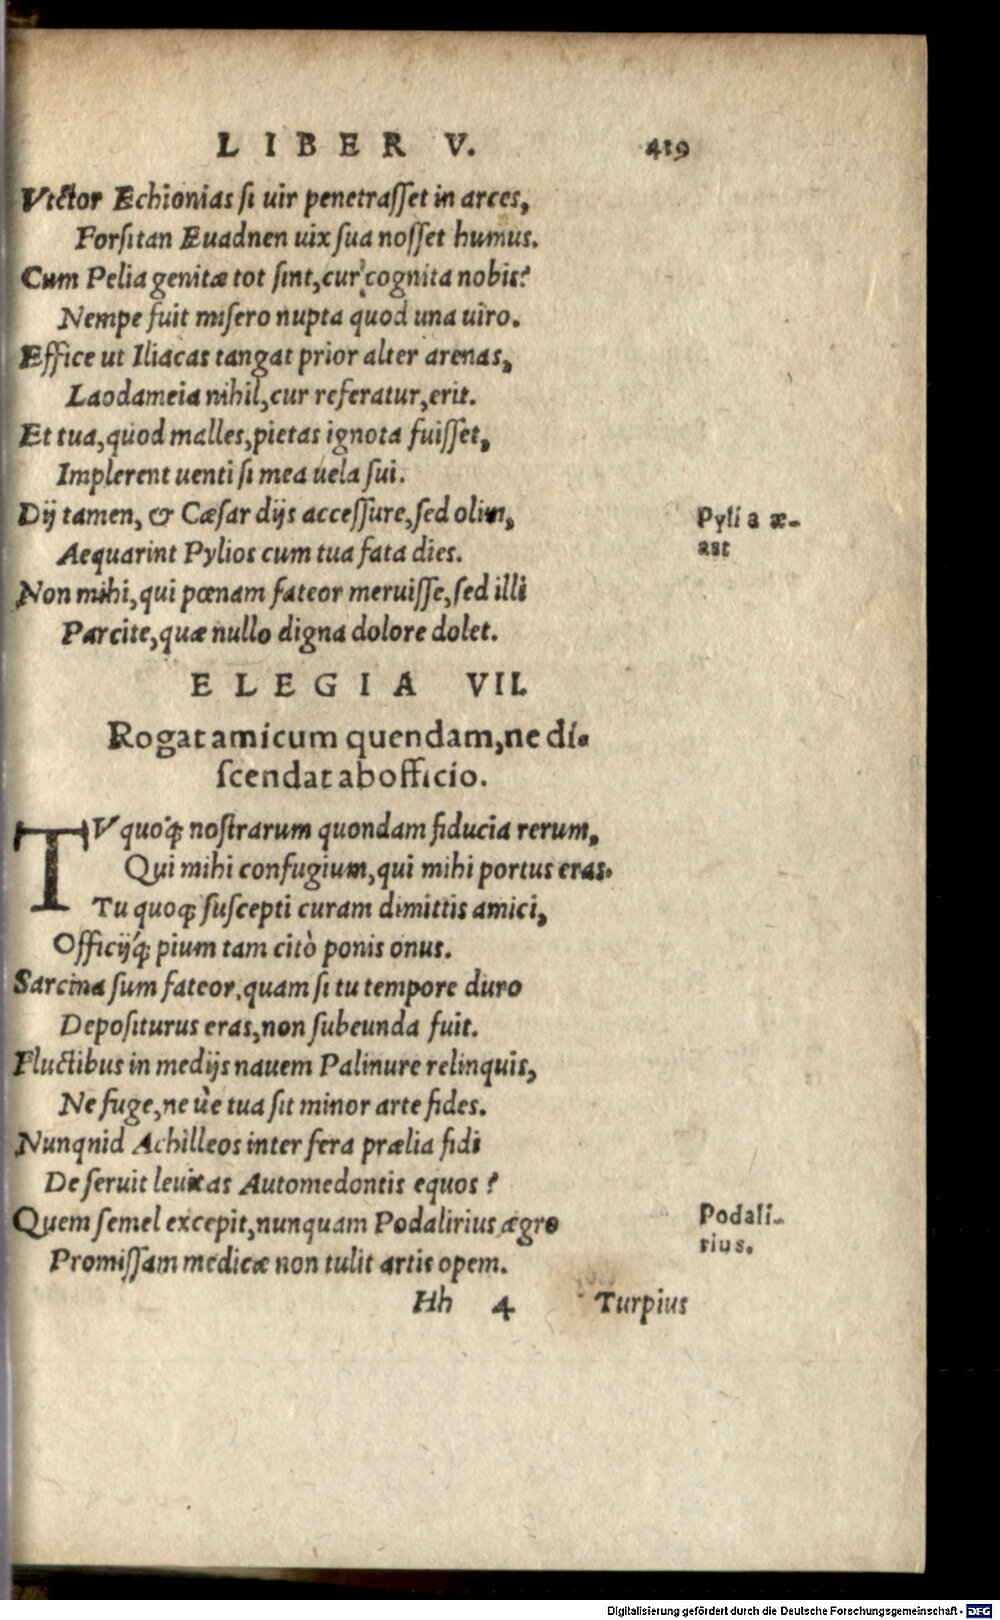 LIBER V. 419
Victor Echionias si uir penetrasset in arces,
Forsitan Euadnen uix sua nosset humus.
Cum Pelia genitæ tot sint, cur cognita nobis?
Nempe fuit misero nupta quod una uiro.
Effice ut Iliacas tangat prior alter arenas,
Laodameia nihil, cur referatur, erit.
Et tua, quod malles, pietas ignota fuisset,
Implerent uenti si mea uela sui.
Dij tamen, & Cæsar dijs accessure, sed olim,
Aequarint Pylios cum tua fata dies.
Non mihi, qui pœnam fateor meruisse, sed illi
Parcite, quæ nullo digna dolore dolet.
Pylia æ-
ast
ELEGIA VII.
Rogat amicum quendam, ne di-
scendat ab officio.
TV quoq́; nostrarum quondam fiducia rerum,
Qui mihi confugium, qui mihi portus eras.
Tu quoq; suscepti curam dimittis amici,
Officijq́; pium tam citò ponis onus.
Sarcina sum fateor, quam si tu tempore duro
Depositurus eras, non subeunda fuit.
Fluctibus in medijs nauem Palinure relinquis,
Ne fuge, ne ùe tua sit minor arte fides.
Nunqnid Achilleos inter fera prælia fidi
Deseruit leuitas Automedontis equos?
Quem semel excepit, nunquam Podalirius ægro
Promissam medicæ non tulit artis opem.
Podali-
rius.
Hh 4 Turpius
Digitalisierung gefördert durch die Deutsche Forschungsgemeinschaft - DFG